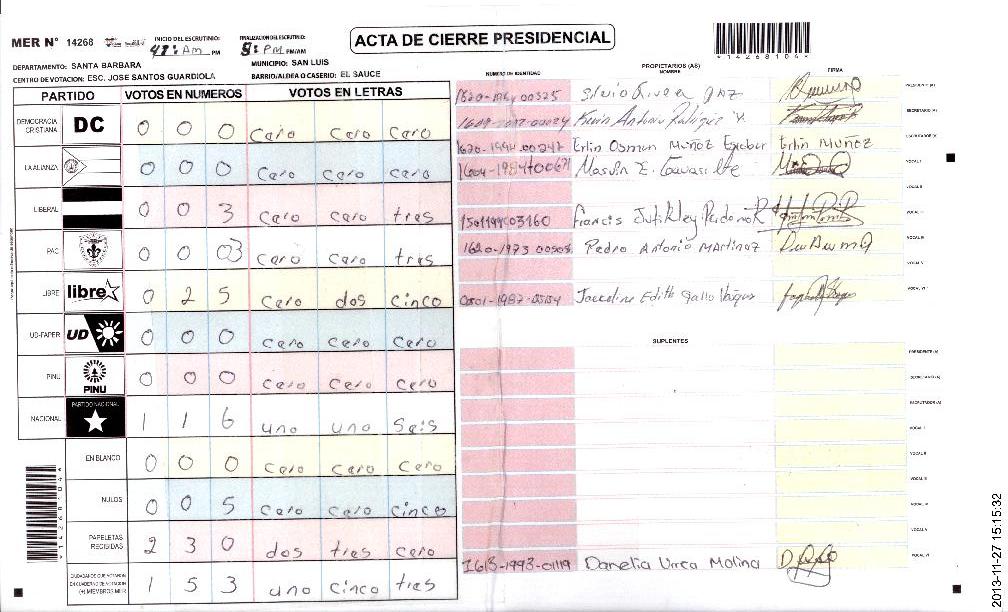 MER N° 14268 INICIO DEL ESCRUTINIO: AM PM FINALIZACION DEL ESCRUTINIO: PM PM/AM
ACTA DE CIERRE PRESIDENCIAL
*14268104*
DEPARTAMENTO: SANTA BARBARA MUNICIPIO: SAN LUIS
CENTRO DE VOTACION: ESC. JOSE SANTOS GUARDIOLA BARRIO/ALDEA O CASERIO: EL SAUCE
PARTIDO VOTOS EN NUMEROS VOTOS EN LETRAS
DEMOCRACIA CRISTIANA DC 0 0 0 Cero Cero Cero
LA ALIANZA 0 0 0 Cero Cero Cero
LIBERAL 0 0 3 Cero Cero tres
PAC 0 0 03 Cero Cero tres
LIBRE libre 0 2 5 Cero dos cinco
UD-FAPER UD 0 0 0 Cero Cero Cero
PINU PINU 0 0 0 Cero Cero Cero
NACIONAL PARTIDO NACIONAL 1 1 6 uno uno Seis
EN BLANCO 0 0 0 Cero Cero Cero
NULOS 0 0 5 Cero Cero Cinco
PAPELETAS RECIBIDAS 2 3 0 dos tres cero
CIUDADANOS QUE VOTARON EN CUADERNO DE VOTACION (+) MIEMBROS MER 1 5 3 uno cinco tres
*14268104*
PROPIETARIOS (AS)
NUMERO DE IDENTIDAD NOMBRE FIRMA
PRESIDENTE (A)
Antonio SECRETARIO (A)
1620-1994-00247 Erlin Osman Muñoz Escobar Erlin Muñoz ESCRUTADOR (A)
Marvin E. VOCAL I
VOCAL II
Francis
1620-1973-00508 Pedro Antonio Martinez
VOCAL V
Jackeline Edith Gallo
SUPLENTES
PRESIDENTE (A)
SECRETARIO (A)
ESCRUTADOR (A)
VOCAL I
VOCAL II
VOCAL III
VOCAL IV
VOCAL V
1613-1993-01119 Danelia Urrea Molina VOCAL VI
2013-11-27 15:15:32